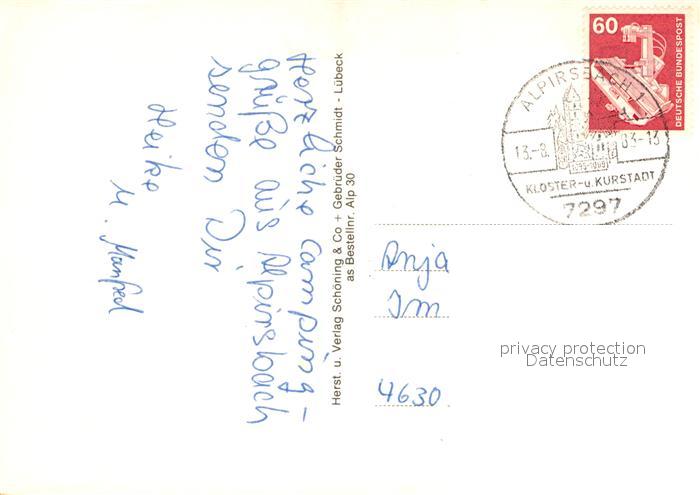 Herzliche Camping-
grüße aus Alpirsbach
senden Dir
Heike
u. Manfred
Herst. u. Verlag Schöning & Co + Gebrüder Schmidt - Lübeck
as Bestellnr. Alp 30
60
DEUTSCHE BUNDESPOST
ALPIRSBACH 1
13.-8. 83-13
KLOSTER-u.KURSTADT
7297
Anja
Im
4630
privacy protection
Datenschutz